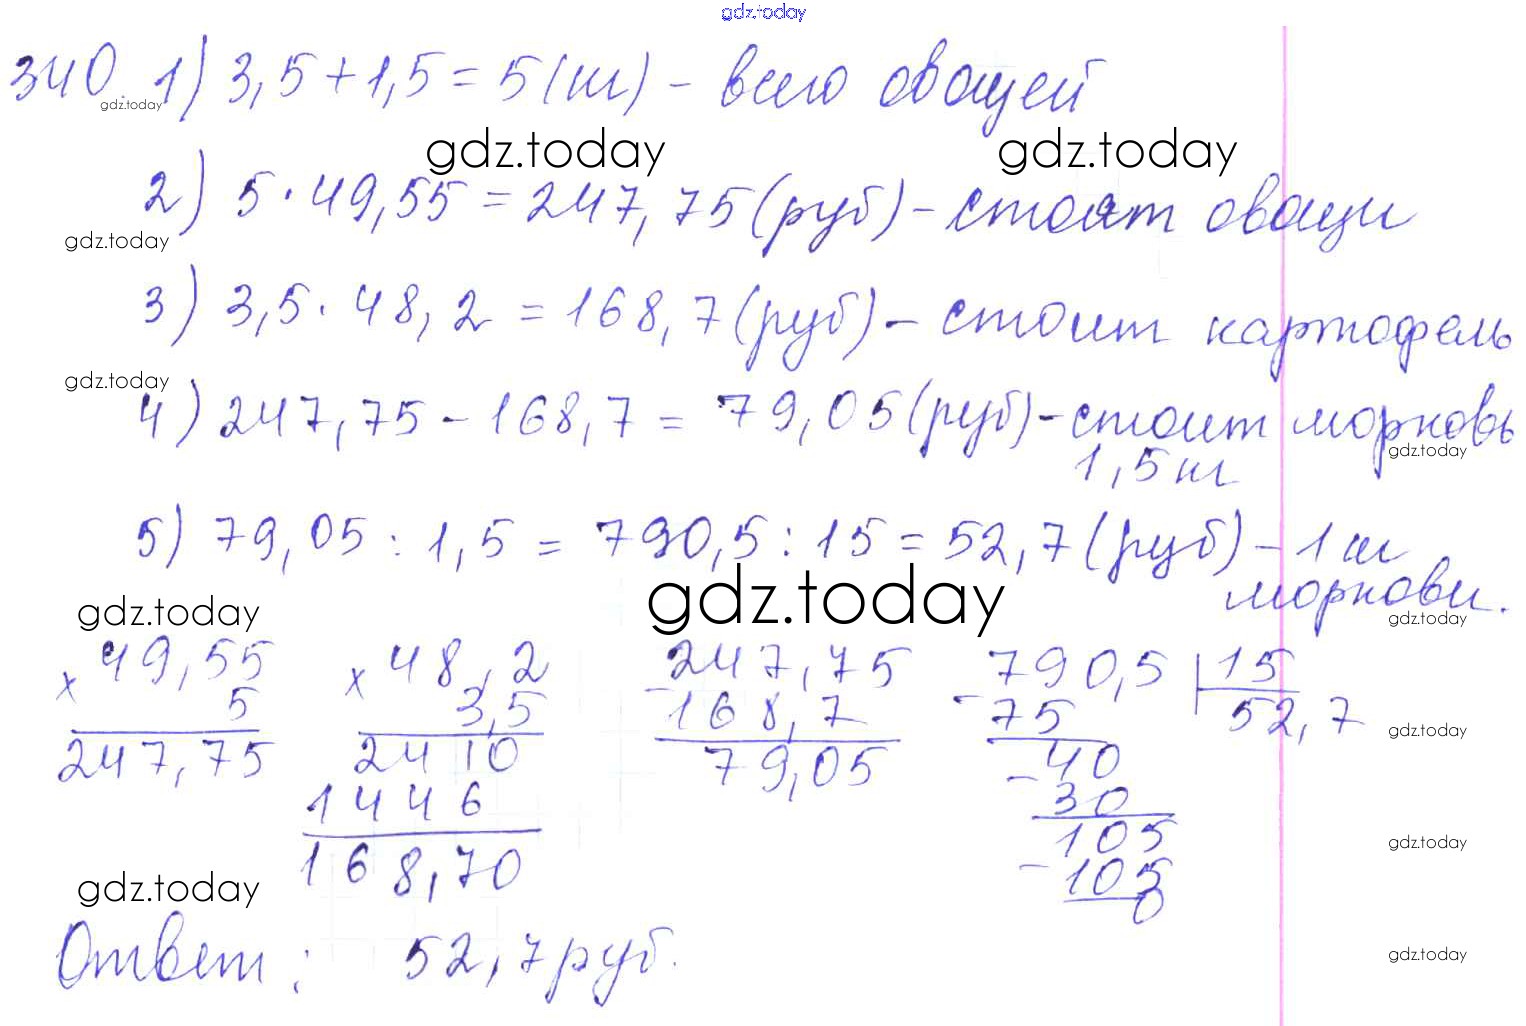 gdz.today
340. 1) 3,5 + 1,5 = 5 (кг) - всего овощей
gdz.today
gdz.today gdz.today
2) 5 · 49,55 = 247,75 (руб) - стоят овощи
gdz.today
3) 3,5 · 48,2 = 168,7 (руб) - стоит картофель
gdz.today
4) 247,75 - 168,7 = 79,05 (руб) - стоит морковь
gdz.today
1,5 кг
5) 79,05 : 1,5 = 790,5 : 15 = 52,7 (руб) - 1 кг
моркови.
gdz.today gdz.today gdz.today
× 49,55
5
247,75
× 48,2
3,5
2410
1446
168,70
- 247,75
168,7
79,05
790,5 | 15
- 75 52,7
40
- 30
105
- 105
0
gdz.today
gdz.today
gdz.today
Ответ: 52,7 руб.
gdz.today